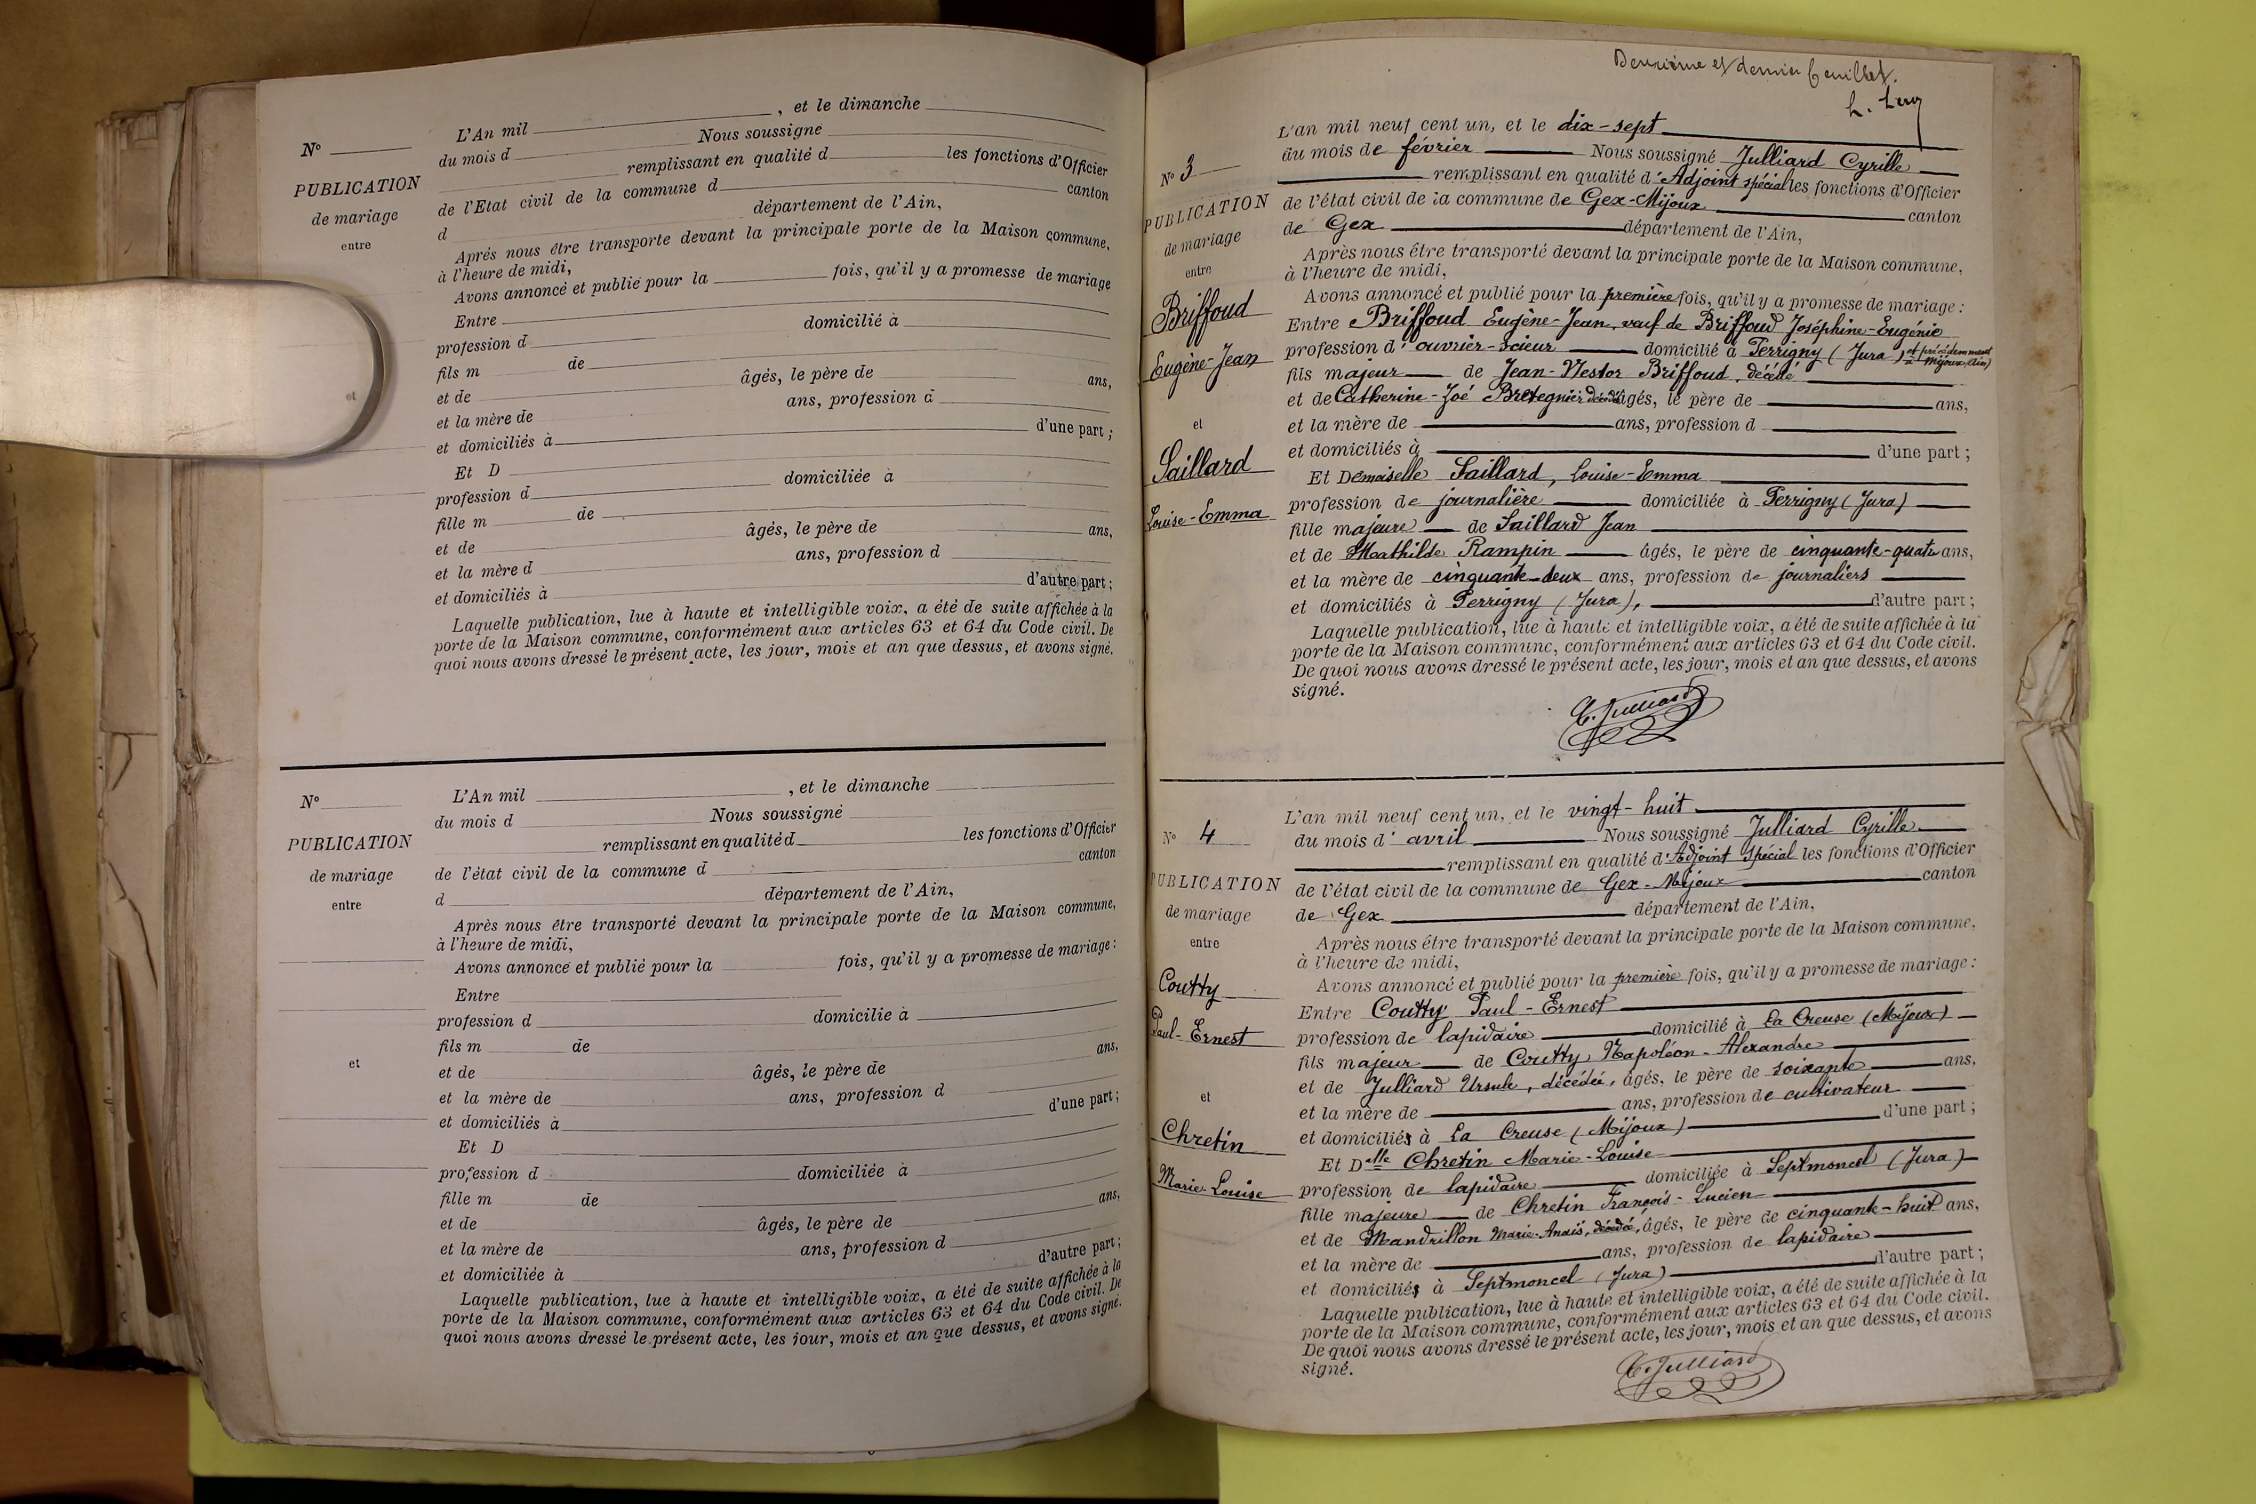 N°
PUBLICATION
de mariage
entre
et
L'An mil , et le dimanche
du mois d Nous soussigné
remplissant en qualité d les fonctions d'Officier
de l'Etat civil de la commune d canton
d département de l'Ain,
Après nous être transporté devant la principale porte de la Maison commune,
à l'heure de midi,
Avons annoncé et publié pour la fois, qu'il y a promesse de mariage
Entre
profession d domicilié à
fils m de
et de âgés, le père de ans,
et la mère de ans, profession d
et domiciliés à d'une part ;
Et D
profession d domiciliée à
fille m de
et de âgés, le père de ans,
et la mère d ans, profession d
et domiciliés à d'autre part ;
Laquelle publication, lue à haute et intelligible voix, a été de suite affichée à la
porte de la Maison commune, conformément aux articles 63 et 64 du Code civil. De
quoi nous avons dressé le présent acte, les jour, mois et an que dessus, et avons signé.
N°
PUBLICATION
de mariage
entre
et
L'An mil , et le dimanche
du mois d Nous soussigné
remplissant en qualité d les fonctions d'Officier
de l'état civil de la commune d canton
d département de l'Ain,
Après nous être transporté devant la principale porte de la Maison commune,
à l'heure de midi,
Avons annoncé et publié pour la fois, qu'il y a promesse de mariage :
Entre
profession d domicilié à
fils m de
et de âgés, le père de ans,
et la mère de ans, profession d
et domiciliés à d'une part ;
Et D
profession d domiciliée à
fille m de
et de âgés, le père de ans,
et la mère de ans, profession d
et domiciliée à d'autre part ;
Laquelle publication, lue à haute et intelligible voix, a été de suite affichée à la
porte de la Maison commune, conformément aux articles 63 et 64 du Code civil. De
quoi nous avons dressé le présent acte, les jour, mois et an que dessus, et avons signé.
Deuxième et dernier feuillet.
N° 3
PUBLICATION
de mariage
entre
Briffoud
Eugène-Jean
et
Saillard
Louise-Emma
L'an mil neuf cent un, et le dix-sept
du mois de février Nous soussigné Julliard Cyrille
remplissant en qualité d'Adjoint spécial les fonctions d'Officier
de l'état civil de la commune de Gex-Mijoux canton
de Gex département de l'Ain,
Après nous être transporté devant la principale porte de la Maison commune,
à l'heure de midi,
Avons annoncé et publié pour la première fois, qu'il y a promesse de mariage :
Entre Briffoud Eugène-Jean, veuf de Briffoud Joséphine-Eugénie
profession d'ouvrier-scieur domicilié à Perrigny (Jura) et précédemment à Mijoux (Ain)
fils majeur de Jean-Nestor Briffoud, décédé
et de Catherine-Zoé Bretegnier décédée âgés, le père de ans,
et la mère de ans, profession d
et domiciliés à d'une part ;
Et Demoiselle Saillard, Louise-Emma
profession de journalière domiciliée à Perrigny (Jura)
fille majeure de Saillard Jean
et de Mathilde Rampin âgés, le père de cinquante-quatre ans,
et la mère de cinquante-deux ans, profession de journaliers
et domiciliés à Perrigny (Jura), d'autre part ;
Laquelle publication, lue à haute et intelligible voix, a été de suite affichée à la
porte de la Maison commune, conformément aux articles 63 et 64 du Code civil.
De quoi nous avons dressé le présent acte, les jour, mois et an que dessus, et avons
signé.
C. Julliard
N° 4
PUBLICATION
de mariage
entre
Coutty
Paul-Ernest
et
Chretin
Marie-Louise
L'an mil neuf cent un, et le vingt-huit
du mois d'avril Nous soussigné Julliard Cyrille
remplissant en qualité d'Adjoint spécial les fonctions d'Officier
de l'état civil de la commune de Gex-Mijoux canton
de Gex département de l'Ain,
Après nous être transporté devant la principale porte de la Maison commune,
à l'heure de midi,
Avons annoncé et publié pour la première fois, qu'il y a promesse de mariage :
Entre Coutty Paul-Ernest
profession de lapidaire domicilié à La Creuse (Mijoux)
fils majeur de Coutty Napoléon-Alexandre
et de Julliard Ursule, décédée, âgés, le père de soixante ans,
et la mère de ans, profession de cultivateur
et domiciliés à La Creuse (Mijoux) d'une part ;
Et Delle Chretin Marie-Louise
profession de lapidaire domiciliée à Septmoncel (Jura)
fille majeure de Chretin François-Lucien
et de Mandrillon Marie-Anaïs, décédée, âgés, le père de cinquante-huit ans,
et la mère de ans, profession de lapidaire
et domiciliés à Septmoncel (Jura) d'autre part ;
Laquelle publication, lue à haute et intelligible voix, a été de suite affichée à la
porte de la Maison commune, conformément aux articles 63 et 64 du Code civil.
De quoi nous avons dressé le présent acte, les jour, mois et an que dessus, et avons
signé.
C. Julliard